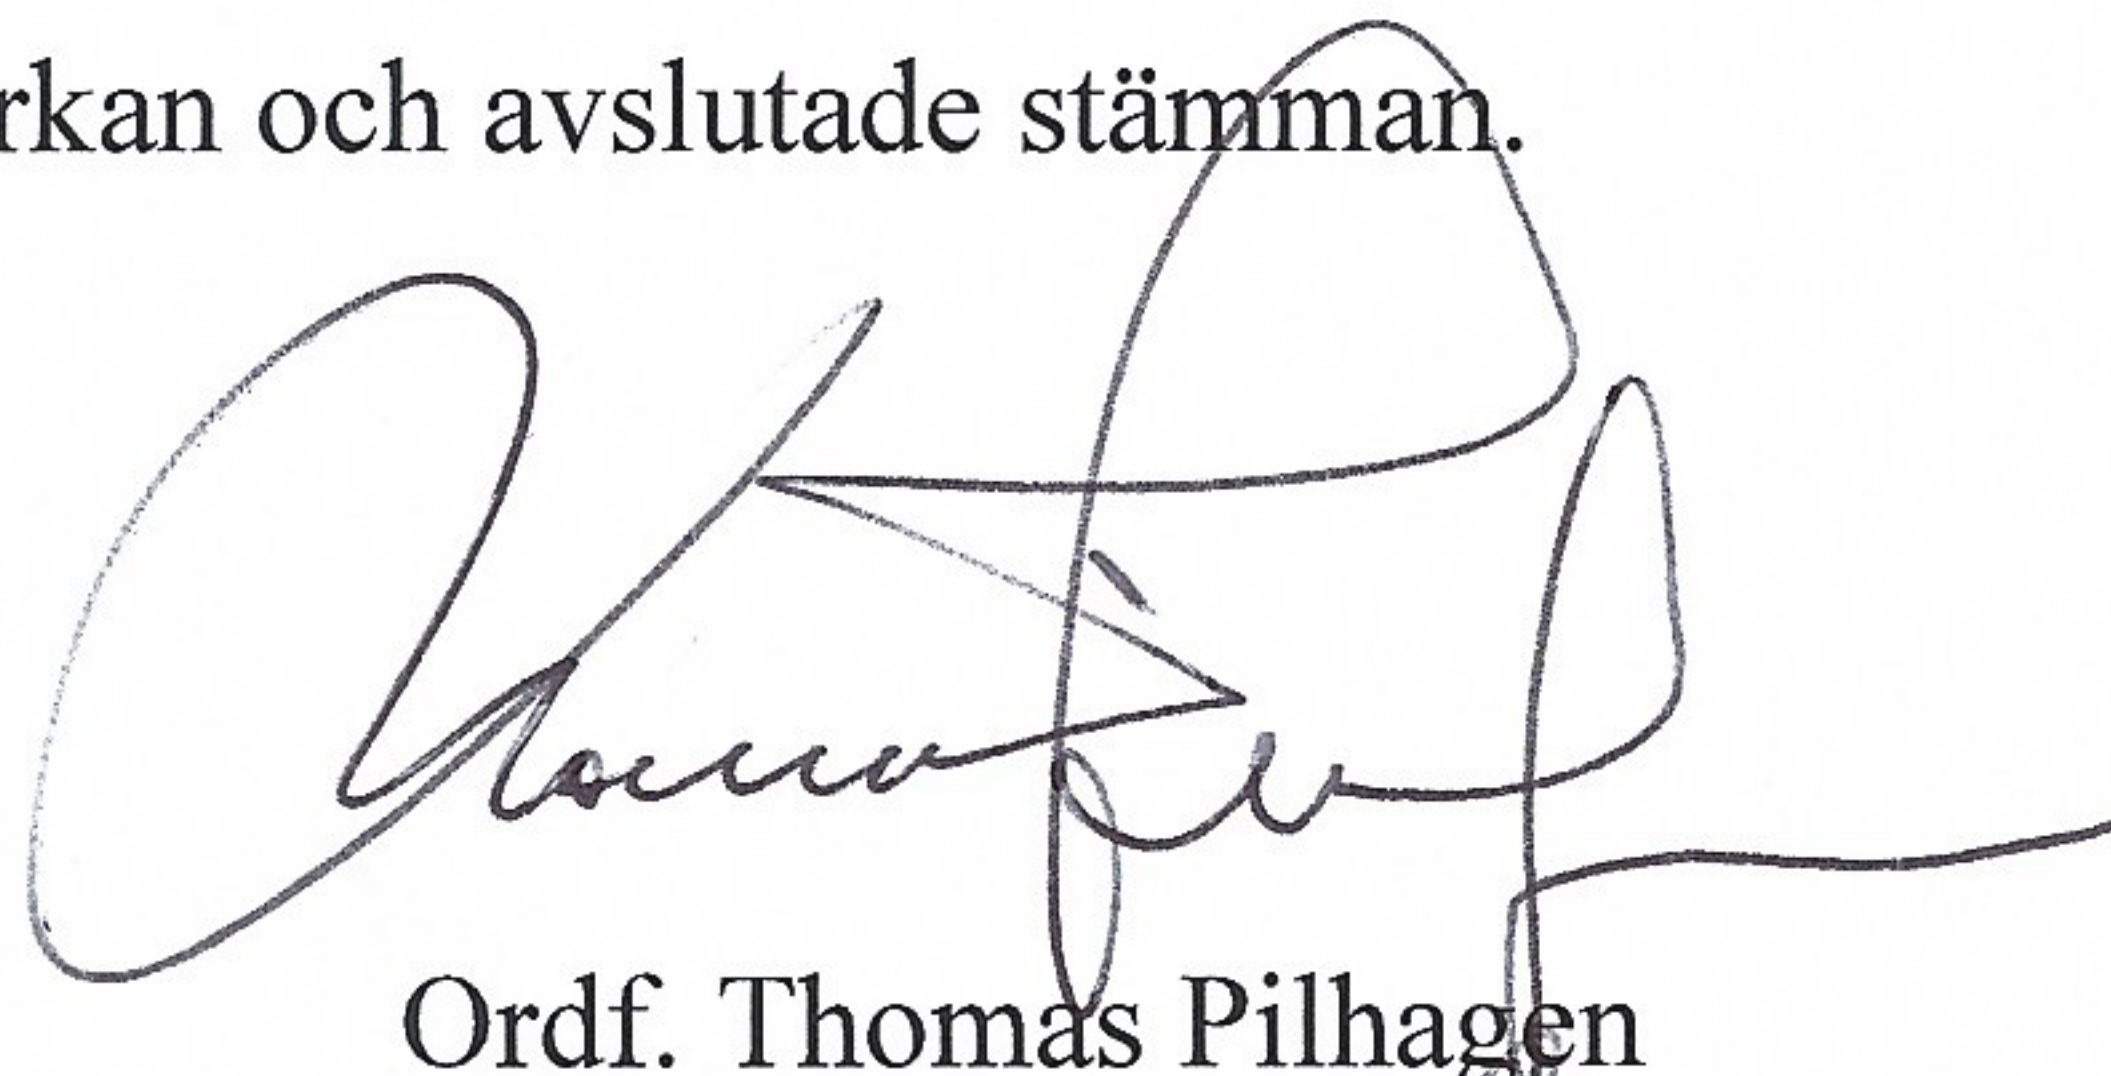 rkan och avslutade stämman.
Ordf. Thomas Pilhagen